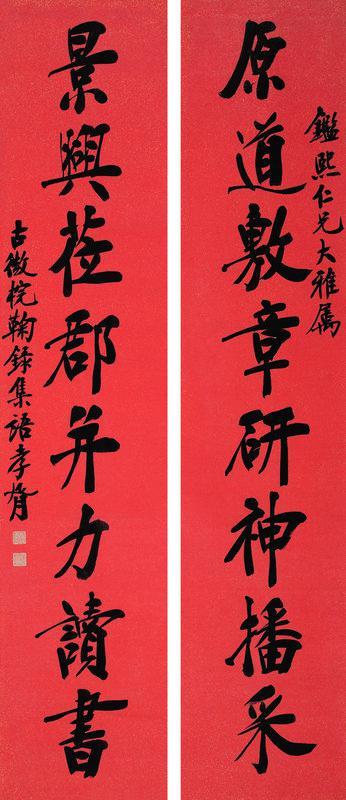 鑑熙仁兄大雅属
原道敷章研神播采
景興莅郡并力讀書
古微梡鞠録集語孝胥